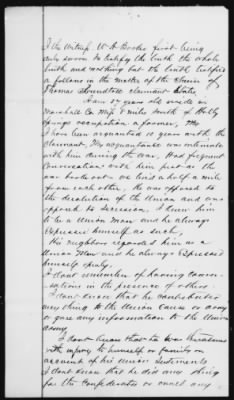 I the Witness W. H. Bowles first being
duly sworn to testify the truth the whole
truth and nothing but the truth testifies
as follows in the matter of the Claim of
Thomas Roundtree claimant states
I am 57 years old reside in
Marshall Co. Miss 8 miles South of Holly
Springs occupation a farmer, My
I have been acquainted 15 years with the
claimant, My acquaintance was intimate
with him during the war, Had frequent
conversations with him just as the
war broke out - we lived half a mile
from each other, He was opposed to
the desolation of the Union and was
opposed to secession, I knew him
to be a Union man and he always
expressed himself as such,
His neighbors regarded him as a
Union Man and he always Expressed
himself openly.
I dont remember of having conver-
sations in the presence of others.
I dont know that he contributed
any thing to the Union Cause or army
or gave any information to the Union
army
I dont know that he was threatened
with injury to himself or family on
account of his Union Sentiments
I dont know that he did any thing
for the Confederates or owned any